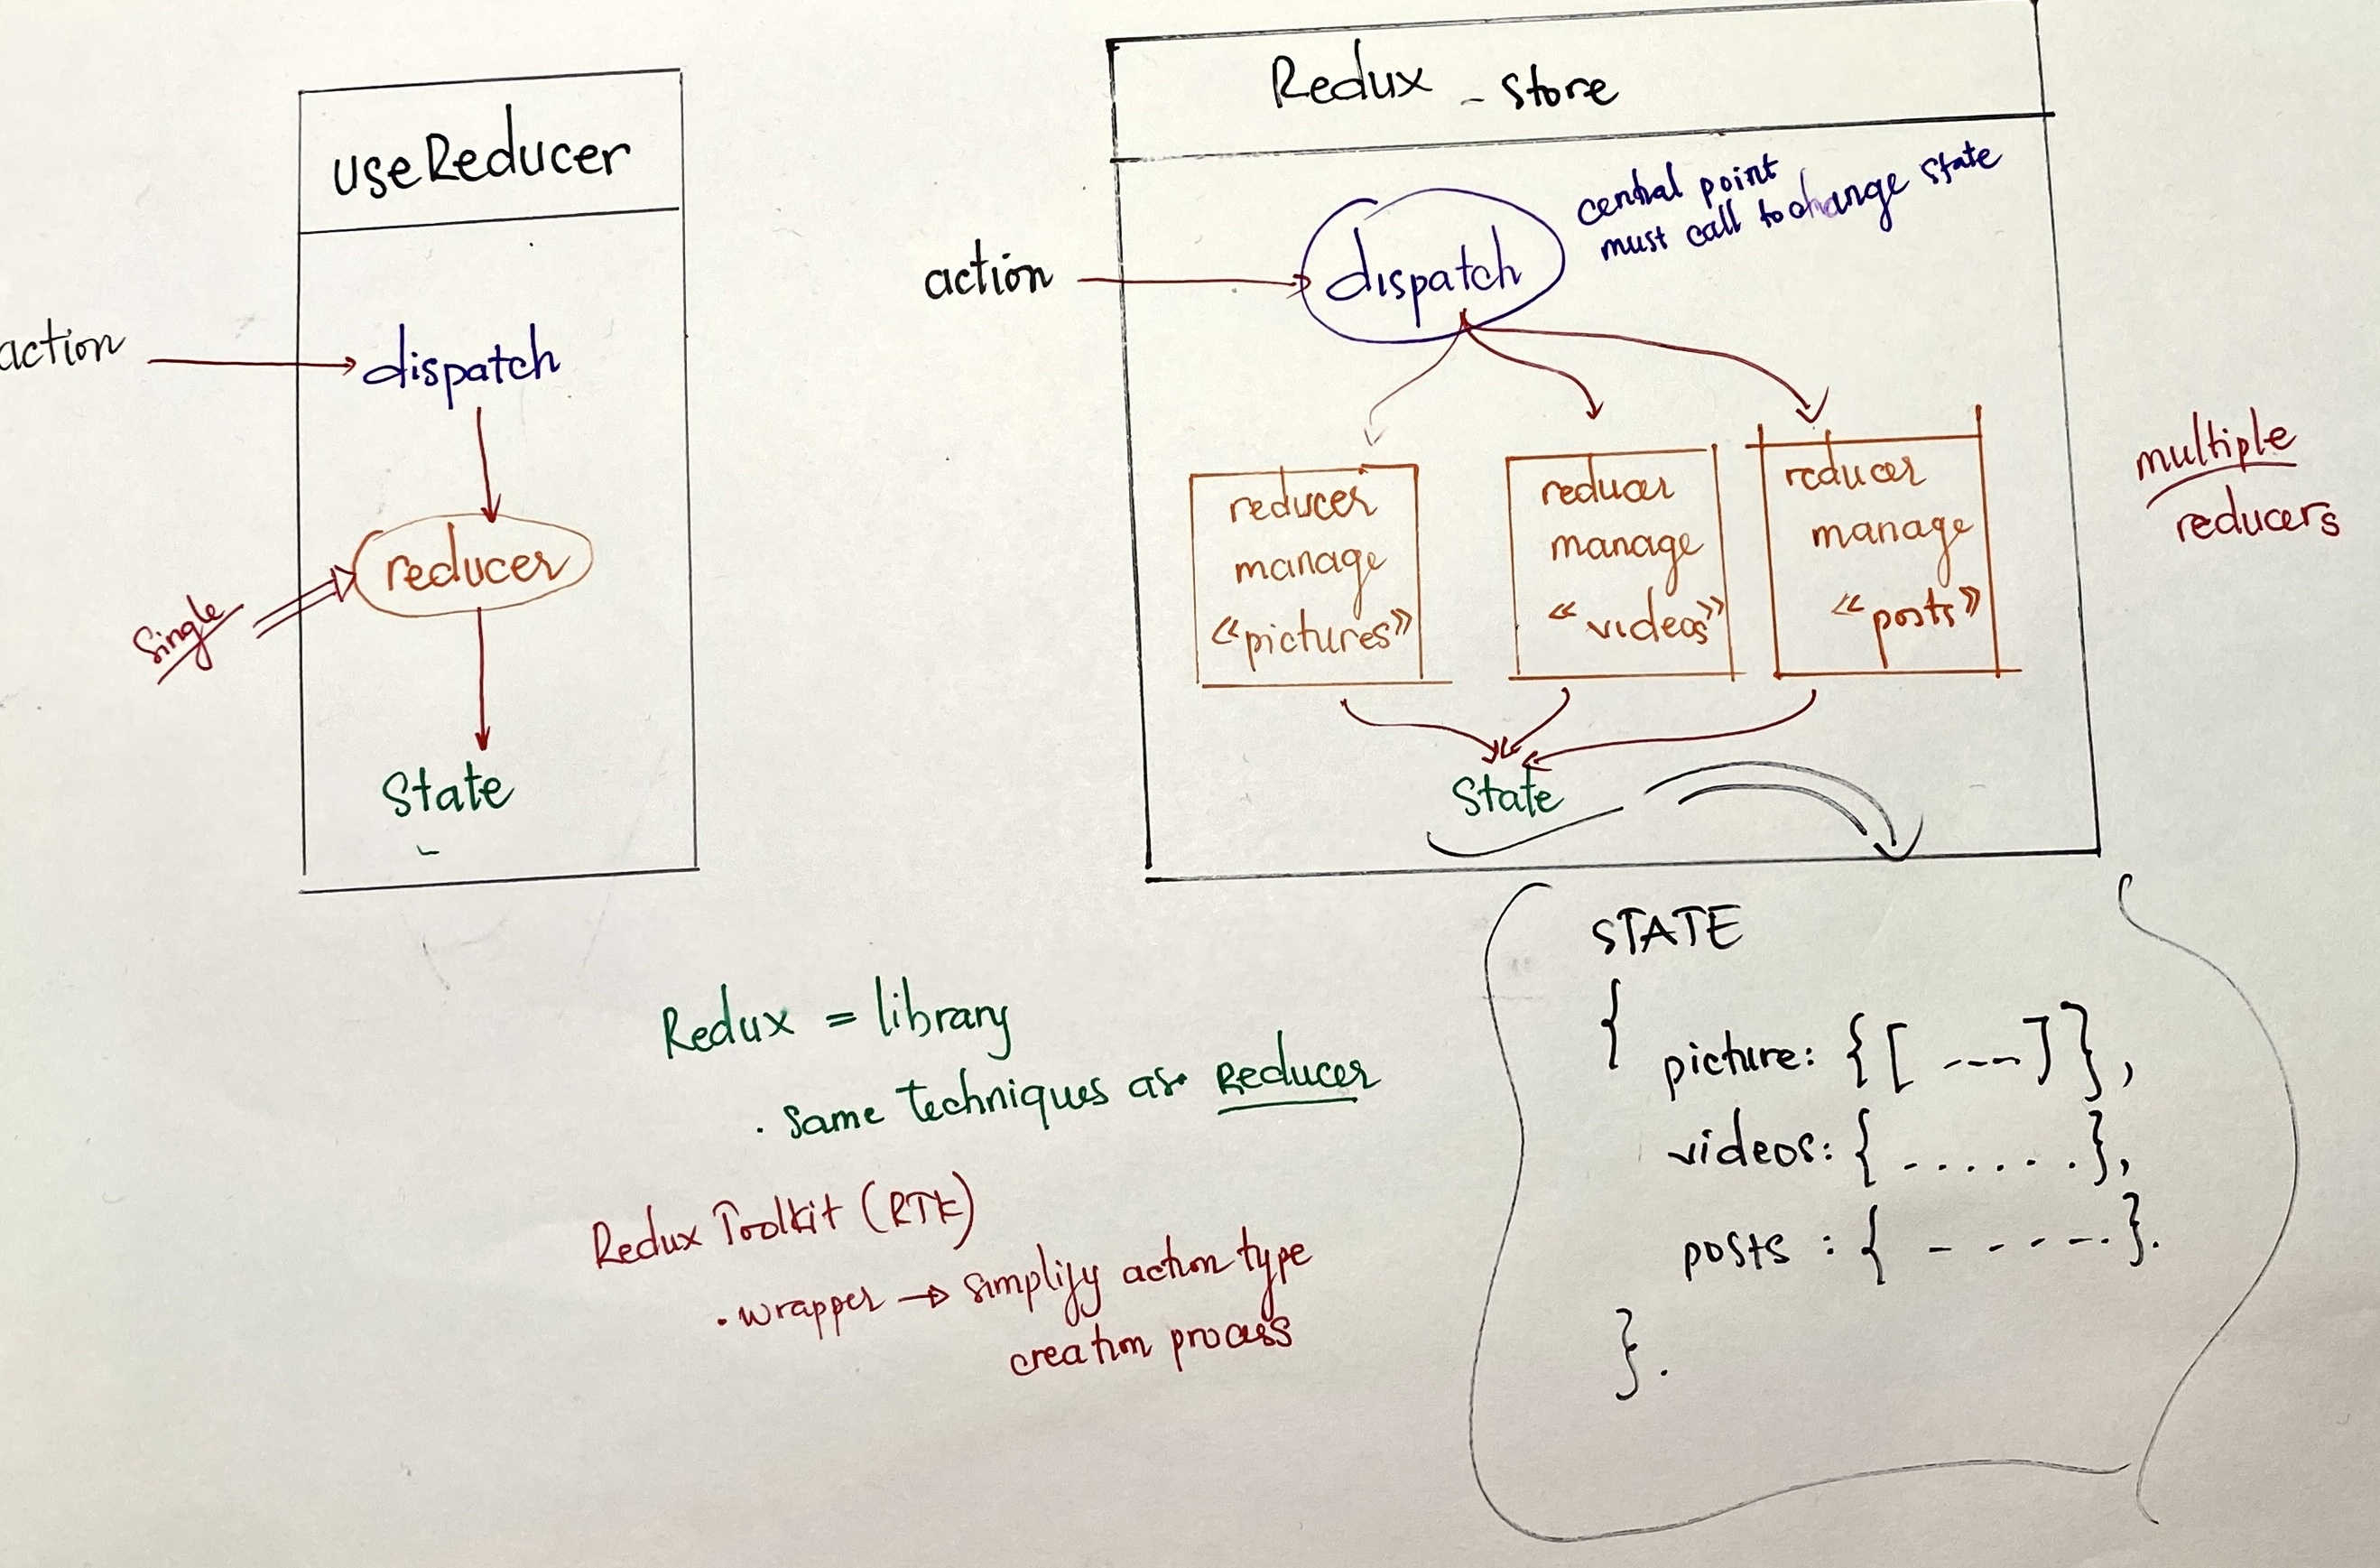 useReducer
action
dispatch
Single
reducer
State
Redux - Store
central point
must call to change state
action
dispatch
reducer
manage
«pictures»
reducer
manage
«videos»
reducer
manage
«posts»
multiple
reducers
State
STATE
{
picture: {[ ---]},
videos: { ...... },
posts : { - - - -- . }.
}.
Redux = library
. Same Techniques as Reducer
Redux Toolkit (RTK)
. wrapper → simplify action type
creation process